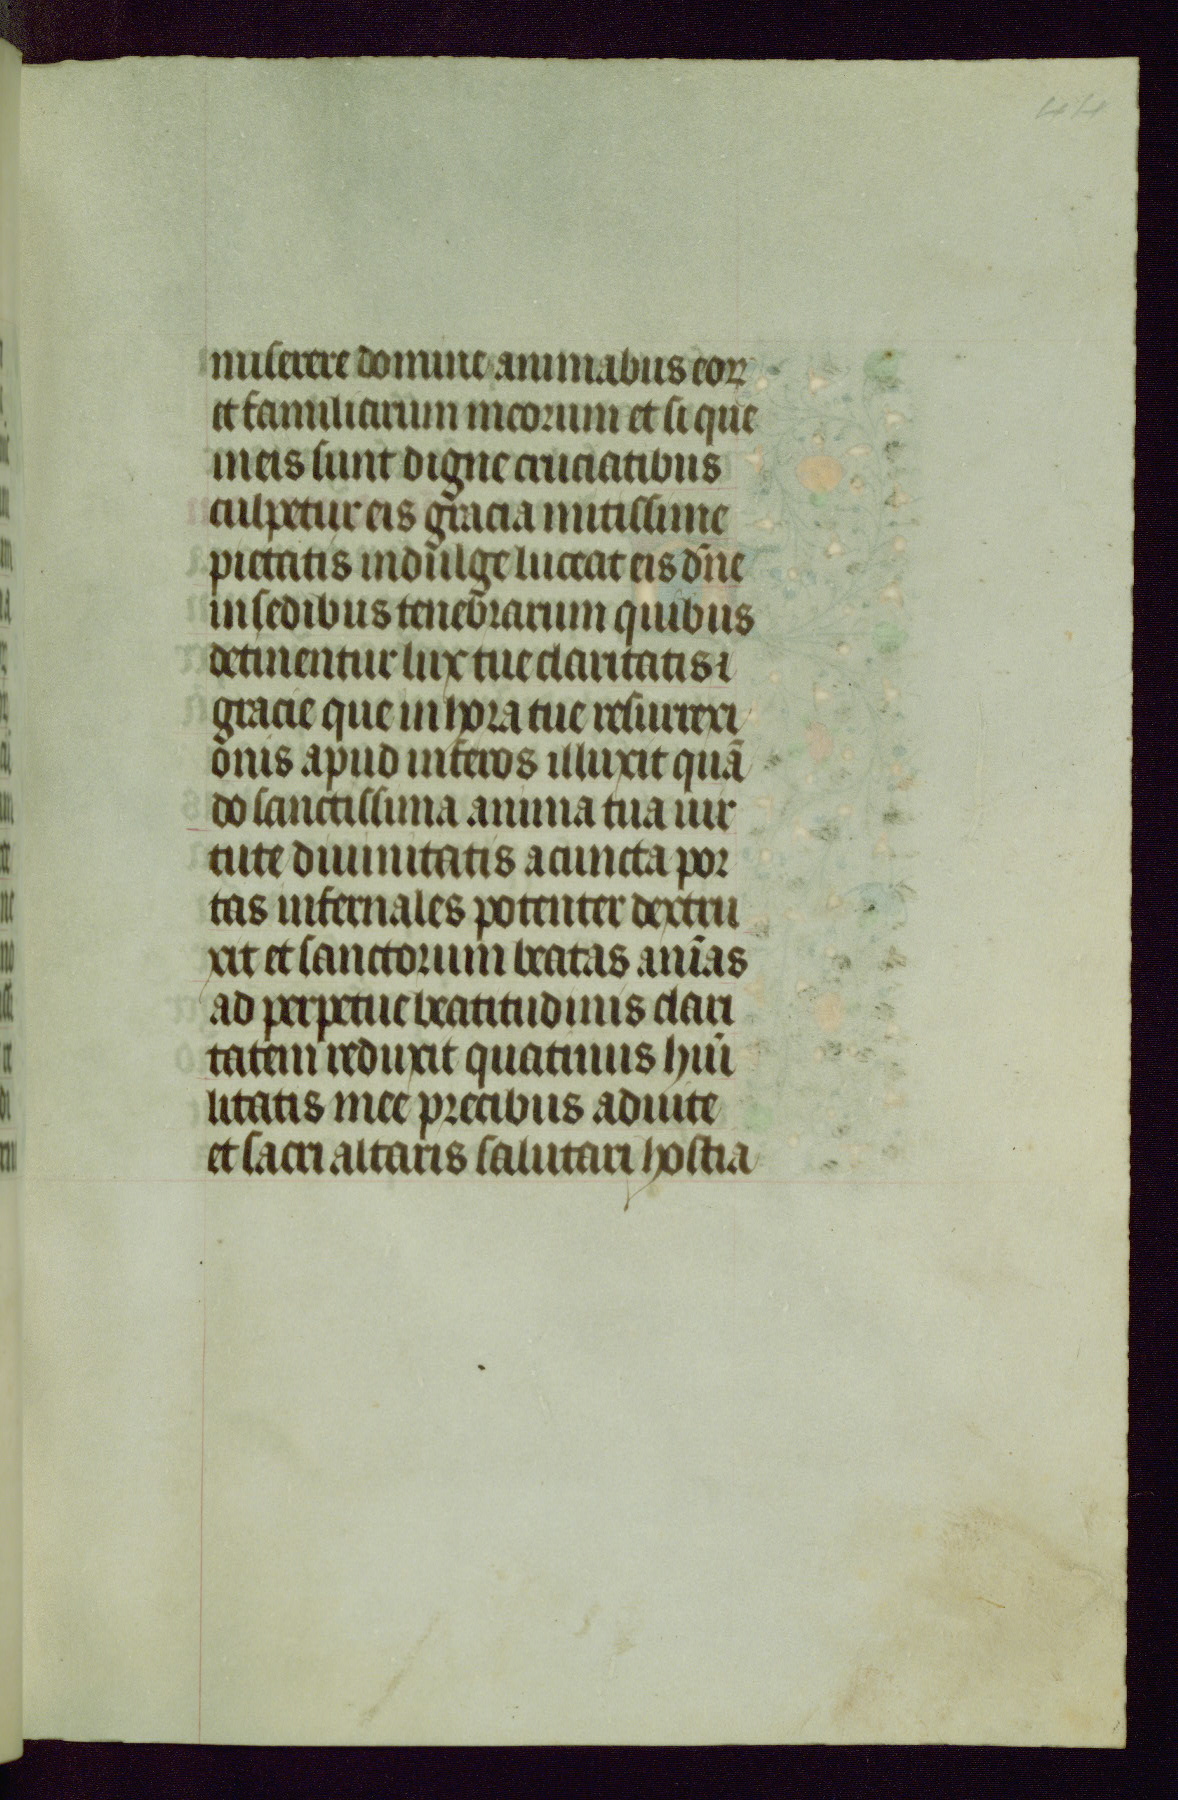 44
miserere domine animabus eoꝝ
et familiarium meorum et si que
in eis sunt digne cruciatibus
culpetur eis gracia mitissime
pietatis indulge luceat eis dn̄e
in sedibus tenebrarum quibus
detinentur lux tue claritatis ⁊
gracie que in hora tue resurrexi
onis apud inferos illuxit quā
do sanctissima anima tua uir
tute diuinitatis a cuncta por
tas infernales potenter dextru
xit et sanctorum beatas anīas
ad perpetue beatitudinis clari
tatem reduxit quatinus hūi
litatis mee precibus adiute
et sacri altaris salutari hostia